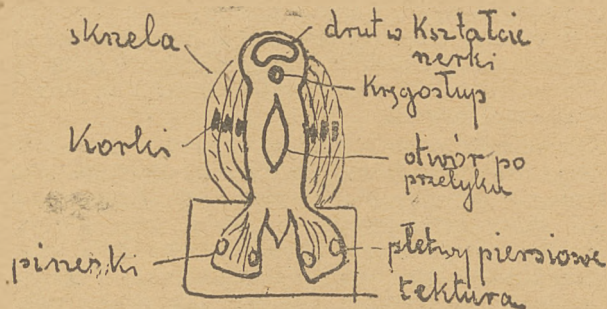 skrzela
drut w kształcie
nerki
kręgosłup
korki
otwór po
przełyku
pineski
płetwy piersiowe
tektura